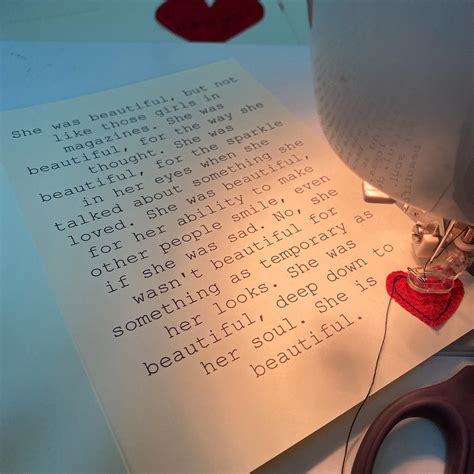 She was beautiful, but not
like those girls in
magazines. She was
beautiful, for the way she
thought. She was
beautiful, for the sparkle
in her eyes when she
talked about something she
loved. She was beautiful,
for her ability to make
other people smile, even
if she was sad. No, she
wasn't beautiful for
something as temporary as
her looks. She was
beautiful, deep down to
her soul. She is
beautiful.